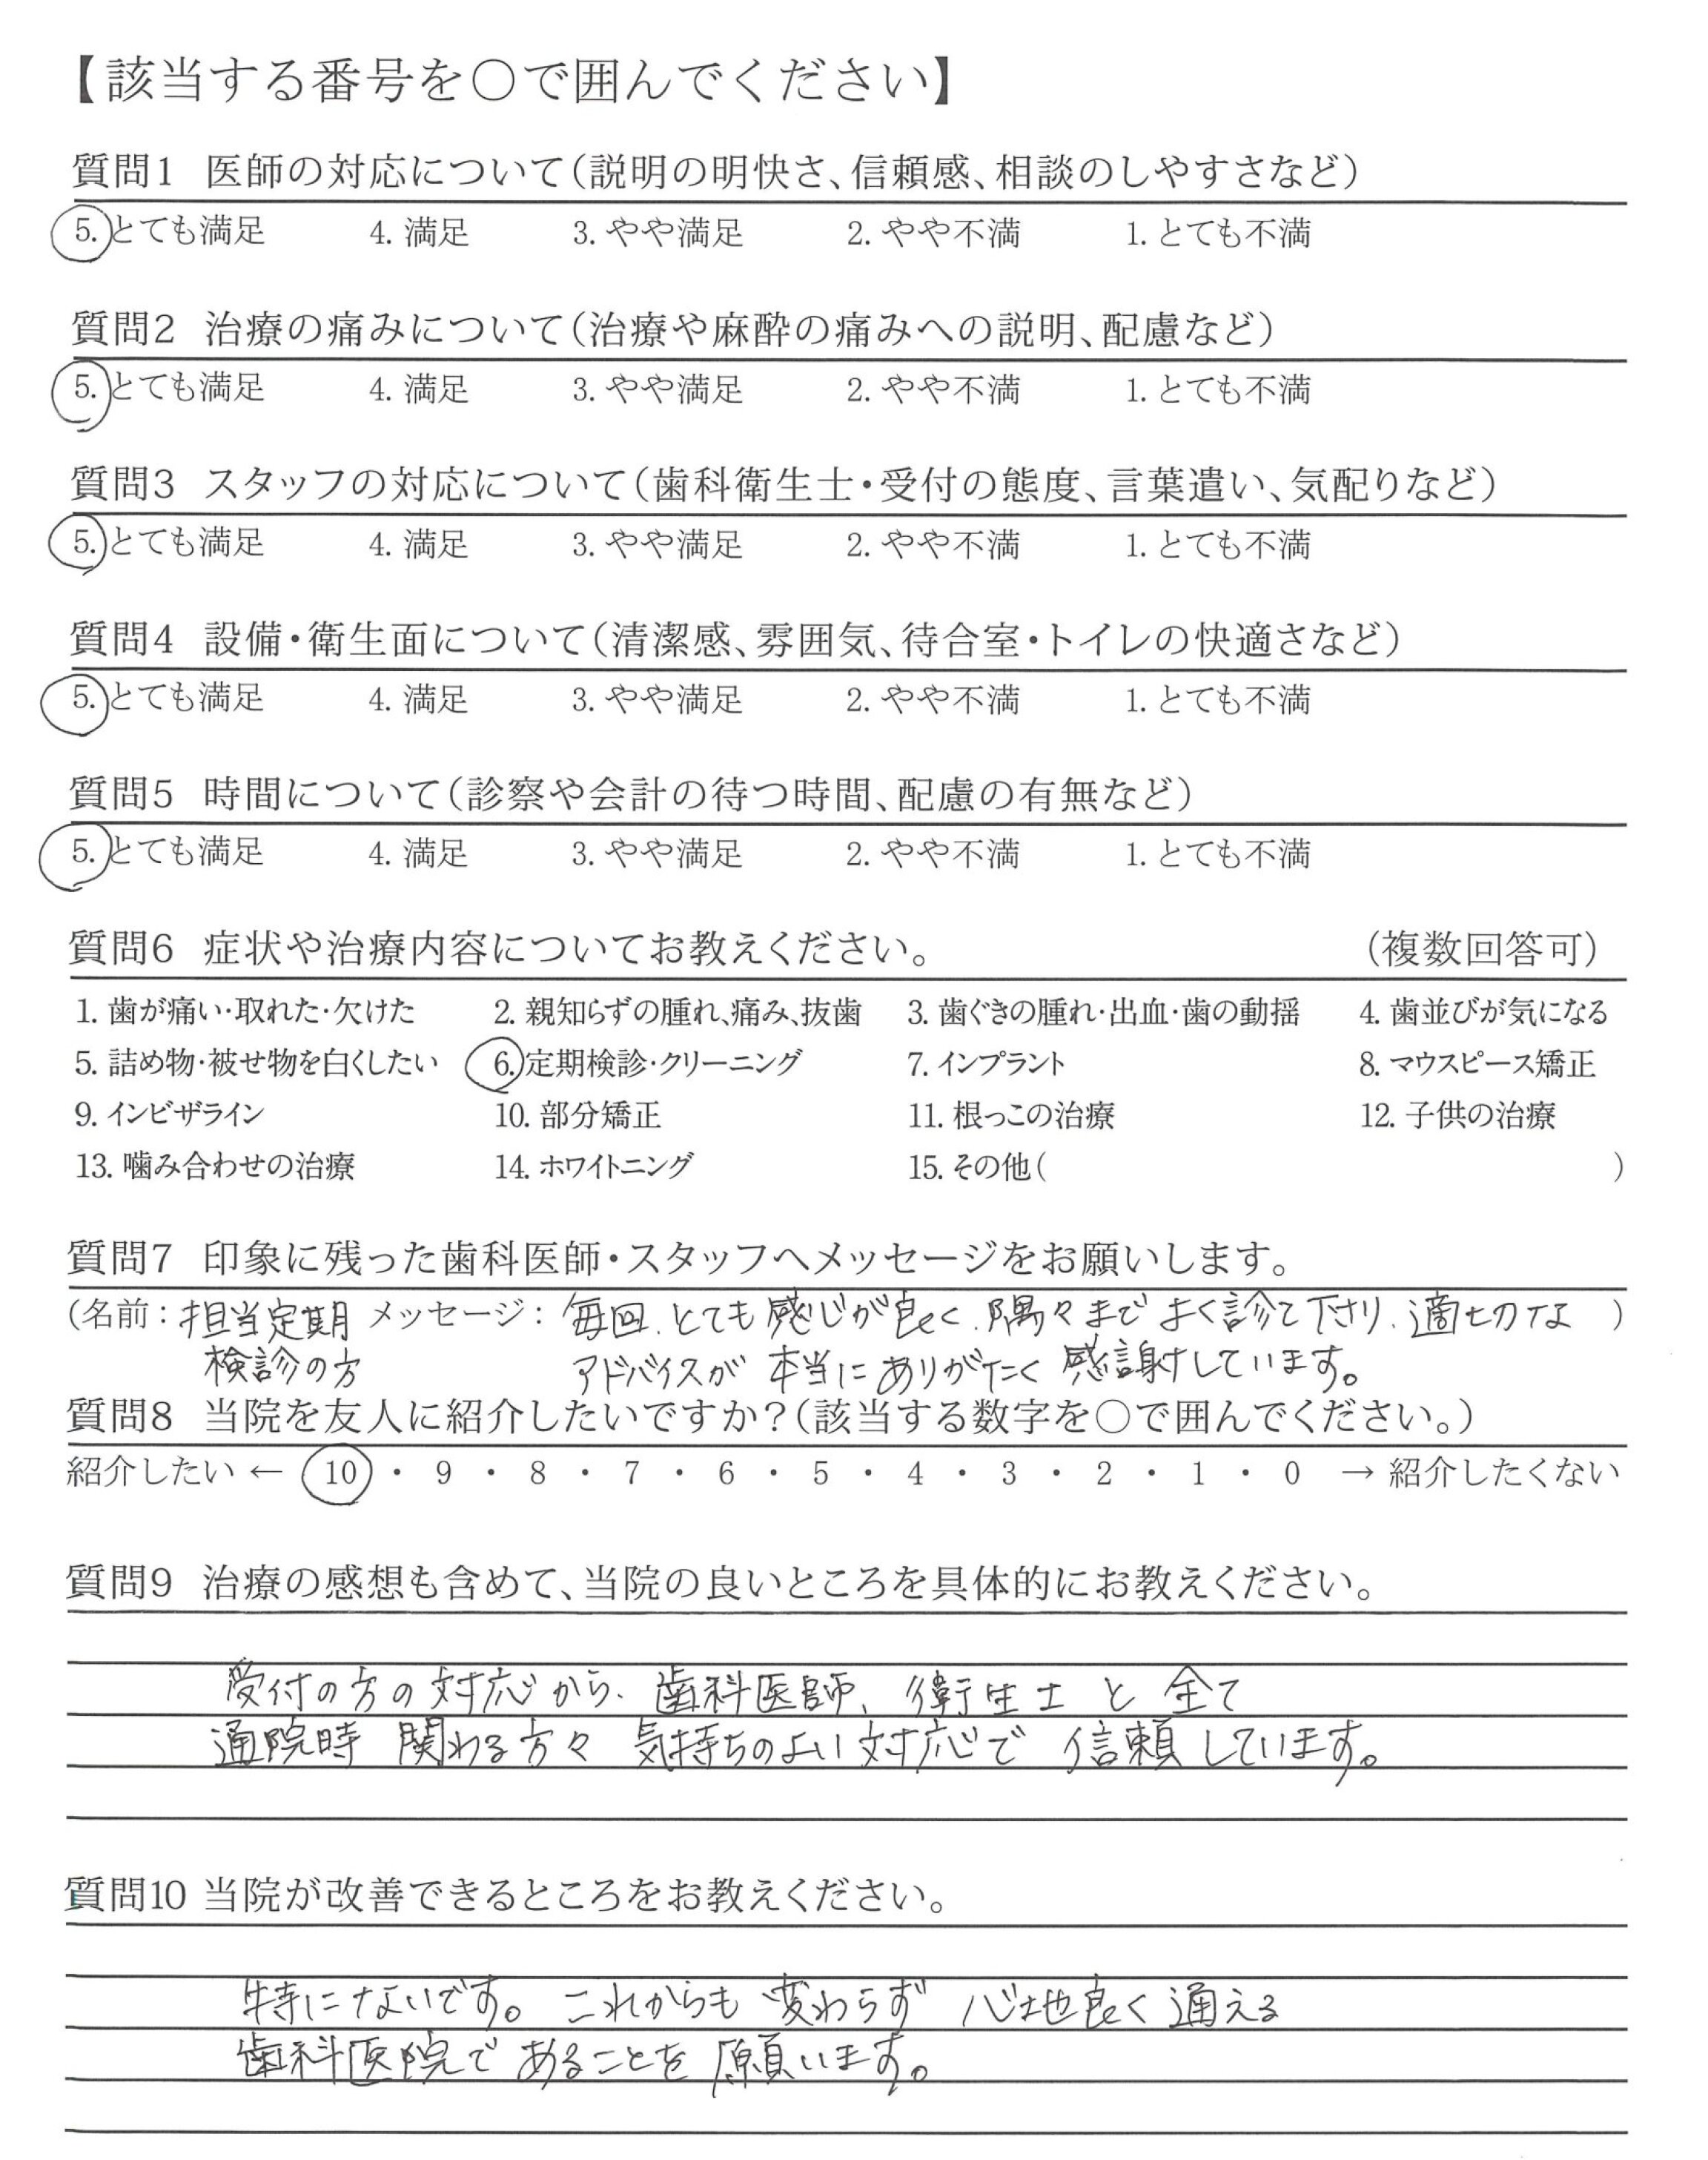 【該当する番号を〇で囲んでください】
質問1 医師の対応について(説明の明快さ、信頼感、相談のしやすさなど)
5. とても満足 4. 満足 3. やや満足 2. やや不満 1. とても不満
質問2 治療の痛みについて(治療や麻酔の痛みへの説明、配慮など)
5. とても満足 4. 満足 3. やや満足 2. やや不満 1. とても不満
質問3 スタッフの対応について(歯科衛生士・受付の態度、言葉遣い、気配りなど)
5. とても満足 4. 満足 3. やや満足 2. やや不満 1. とても不満
質問4 設備・衛生面について(清潔感、雰囲気、待合室・トイレの快適さなど)
5. とても満足 4. 満足 3. やや満足 2. やや不満 1. とても不満
質問5 時間について(診察や会計の待つ時間、配慮の有無など)
5. とても満足 4. 満足 3. やや満足 2. やや不満 1. とても不満
質問6 症状や治療内容についてお教えください。 (複数回答可)
1. 歯が痛い・取れた・欠けた 2. 親知らずの腫れ、痛み、抜歯 3. 歯ぐきの腫れ・出血・歯の動揺 4. 歯並びが気になる
5. 詰め物・被せ物を白くしたい 6. 定期検診・クリーニング 7. インプラント 8. マウスピース矯正
9. インビザライン 10. 部分矯正 11. 根っこの治療 12. 子供の治療
13. 噛み合わせの治療 14. ホワイトニング 15. その他( )
質問7 印象に残った歯科医師・スタッフへメッセージをお願いします。
(名前:担当定期 メッセージ:毎回、とても感じが良く、隅々までよく診て下さり、適切な )
検診の方 アドバイスが本当にありがたく感謝しています。
質問8 当院を友人に紹介したいですか?(該当する数字を〇で囲んでください。)
紹介したい ← 10 ・ 9 ・ 8 ・ 7 ・ 6 ・ 5 ・ 4 ・ 3 ・ 2 ・ 1 ・ 0 → 紹介したくない
質問9 治療の感想も含めて、当院の良いところを具体的にお教えください。
受付の方の対応から、歯科医師、衛生士と全て
通院時 関わる方々 気持ちのよい対応で 信頼しています。
質問10 当院が改善できるところをお教えください。
特にないです。これからも変わらず 心地良く通える
歯科医院であることを願います。